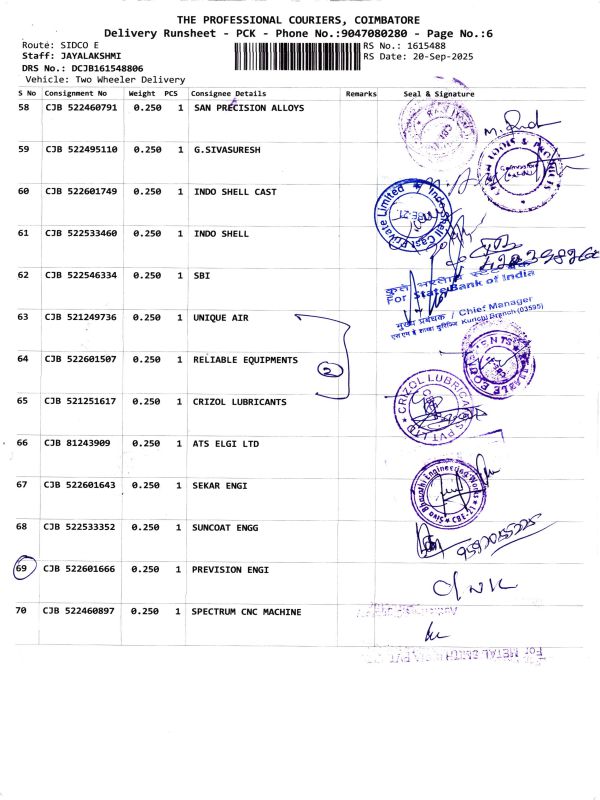 THE PROFESSIONAL COURIERS, COIMBATORE
Delivery Runsheet - PCK - Phone No.:9047080280 - Page No.:6
Route: SIDCO E
RS No.: 1615488
Staff: JAYALAKSHMI
RS Date: 20-Sep-2025
DRS No.: DCJB161548806
Vehicle: Two Wheeler Delivery
S No Consignment No Weight PCS Consignee Details Remarks Seal & Signature
58 CJB 522460791 0.250 1 SAN PRECISION ALLOYS
59 CJB 522495110 0.250 1 G.SIVASURESH
60 CJB 522601749 0.250 1 INDO SHELL CAST
Indo Shell Cast Private Limited
61 CJB 522533460 0.250 1 INDO SHELL
62 CJB 522546334 0.250 1 SBI
For State Bank of India
63 CJB 521249736 0.250 1 UNIQUE AIR
मुख्य प्रबंधक / Chief Manager
Kurichi Branch (03595)
64 CJB 522601507 0.250 1 RELIABLE EQUIPMENTS
2
65 CJB 521251617 0.250 1 CRIZOL LUBRICANTS
CRIZOL LUBRICANTS PVT LTD
66 CJB 81243909 0.250 1 ATS ELGI LTD
67 CJB 522601643 0.250 1 SEKAR ENGI
Siva Bharathi Engineering Works
CBE-21
68 CJB 522533352 0.250 1 SUNCOAT ENGG
69 CJB 522601666 0.250 1 PREVISION ENGI
70 CJB 522460897 0.250 1 SPECTRUM CNC MACHINE